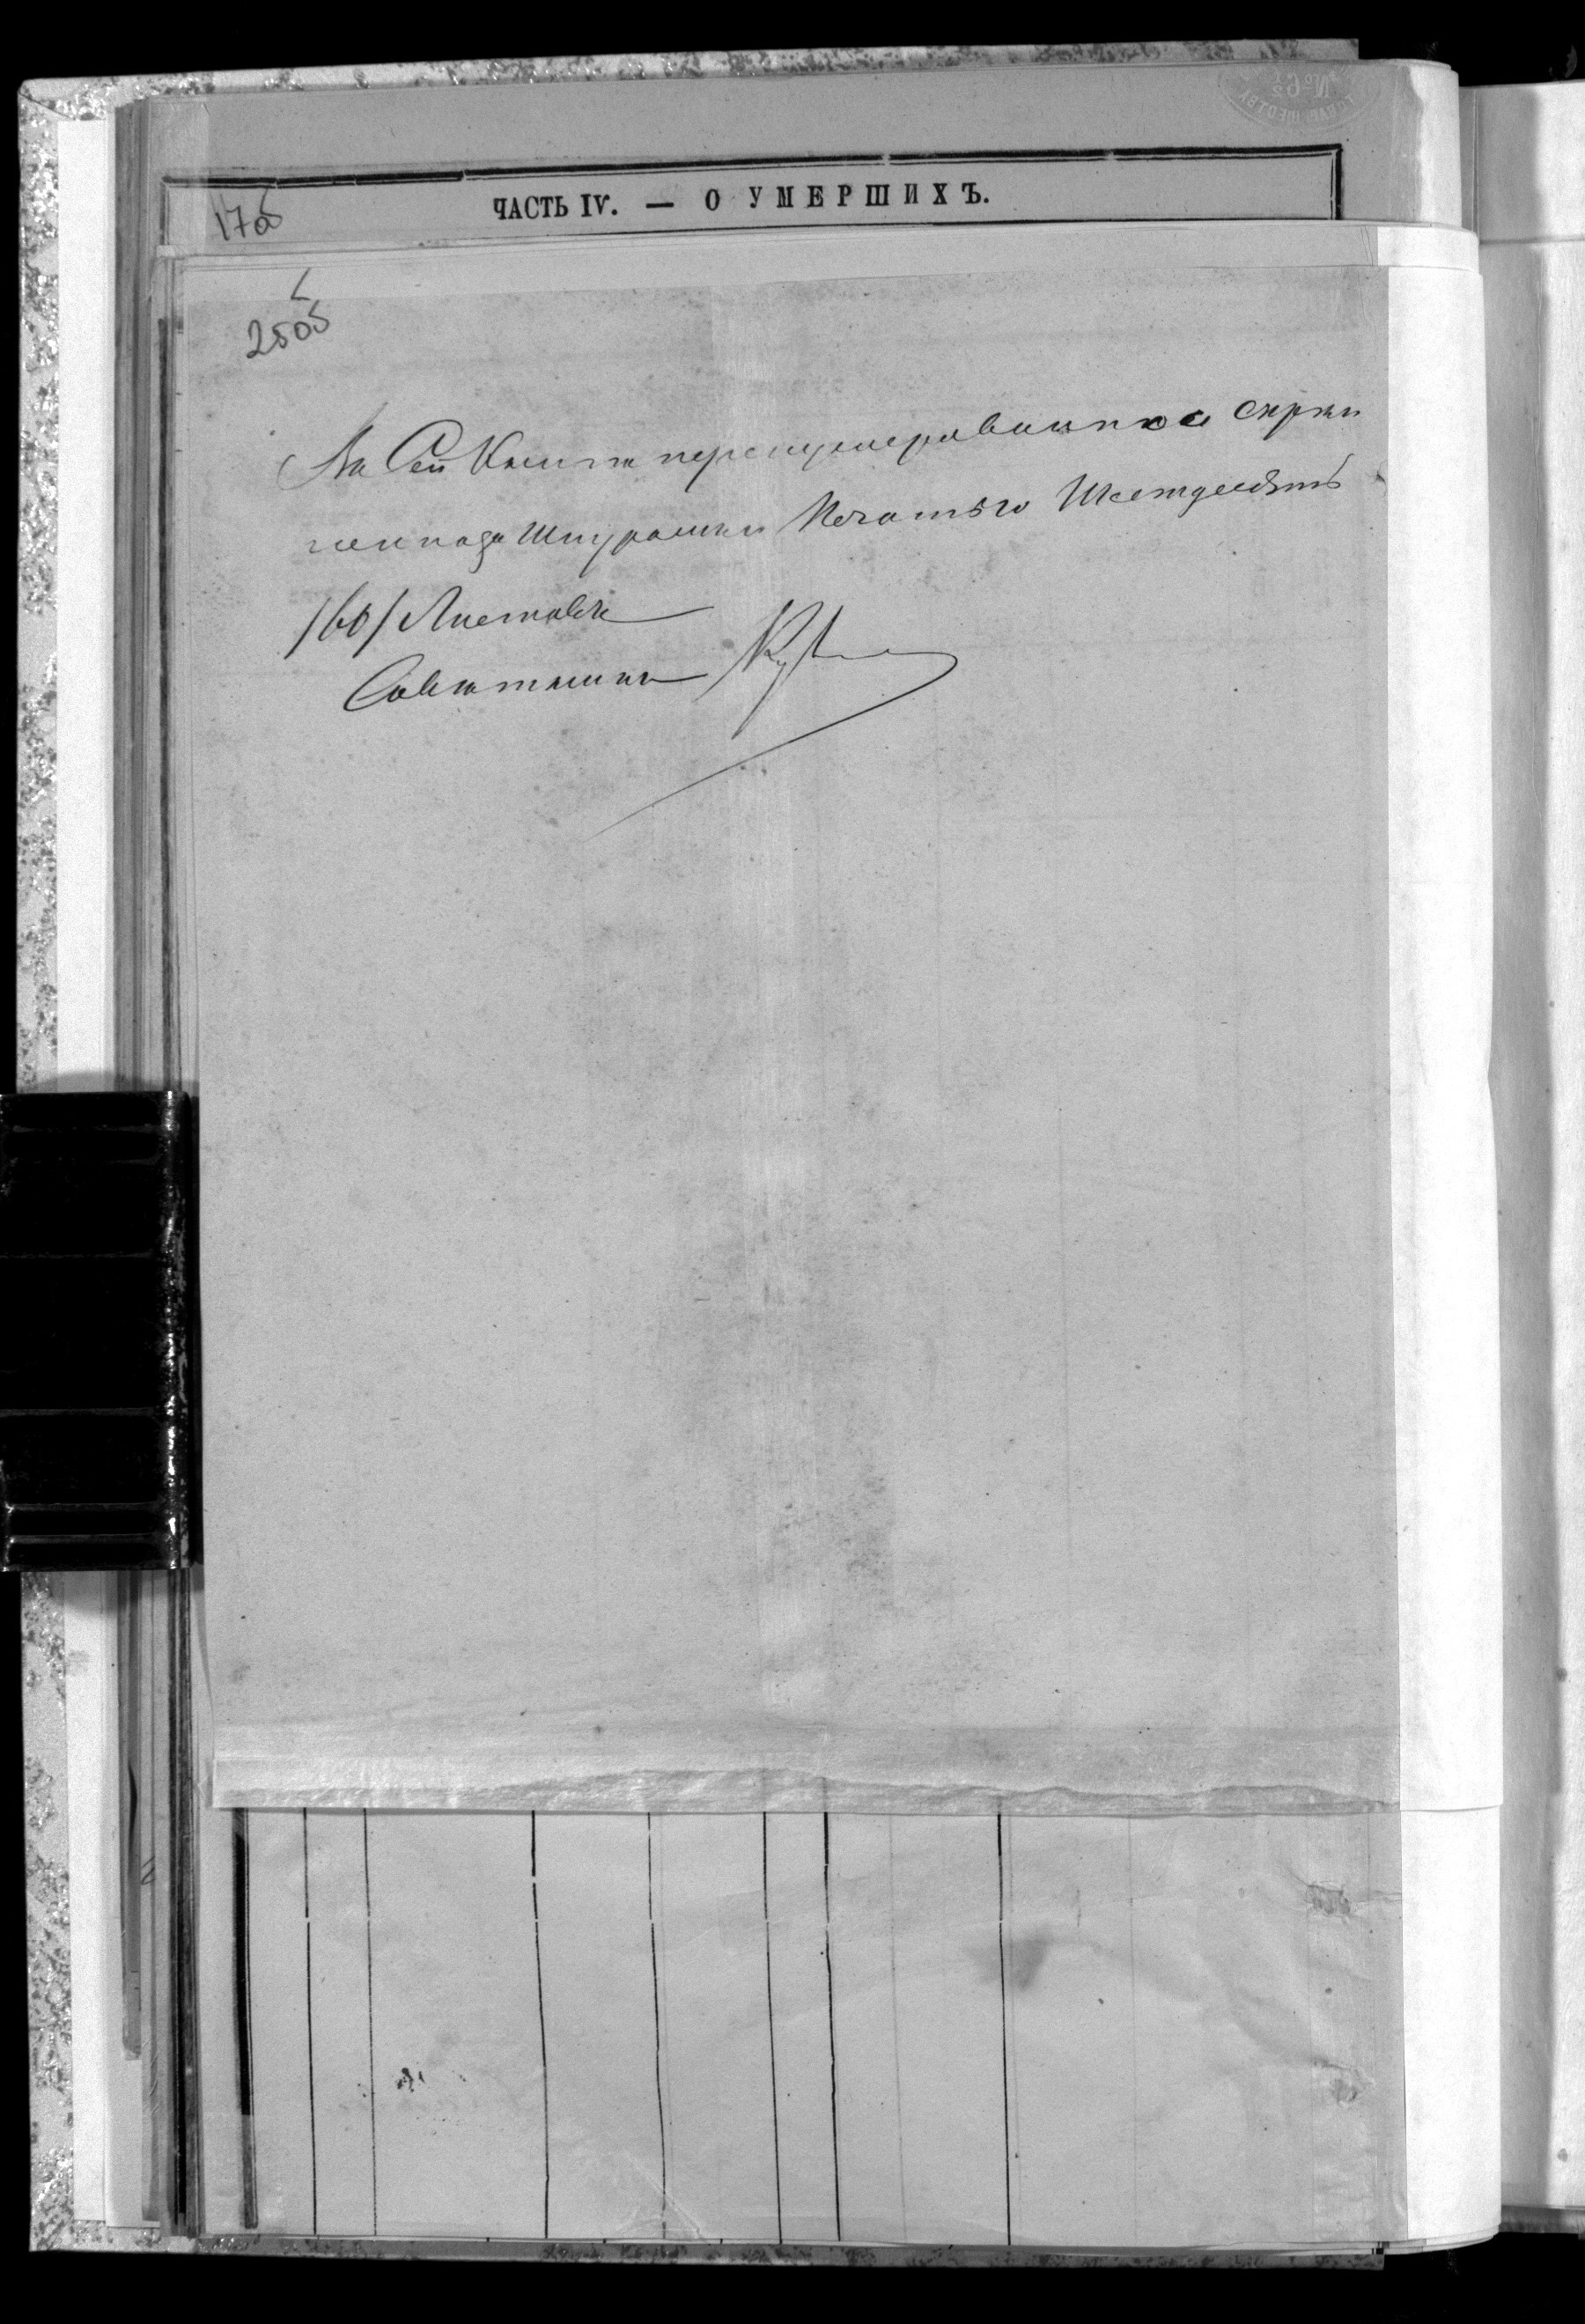 170б
ЧАСТЬ IV. — О УМЕРШИХЪ.
250б
Въ Сей Книге перенумерованной скреп
ленной за Шнуромъ и Печатью Шестдесятъ
/60/ Листовъ
Советникъ